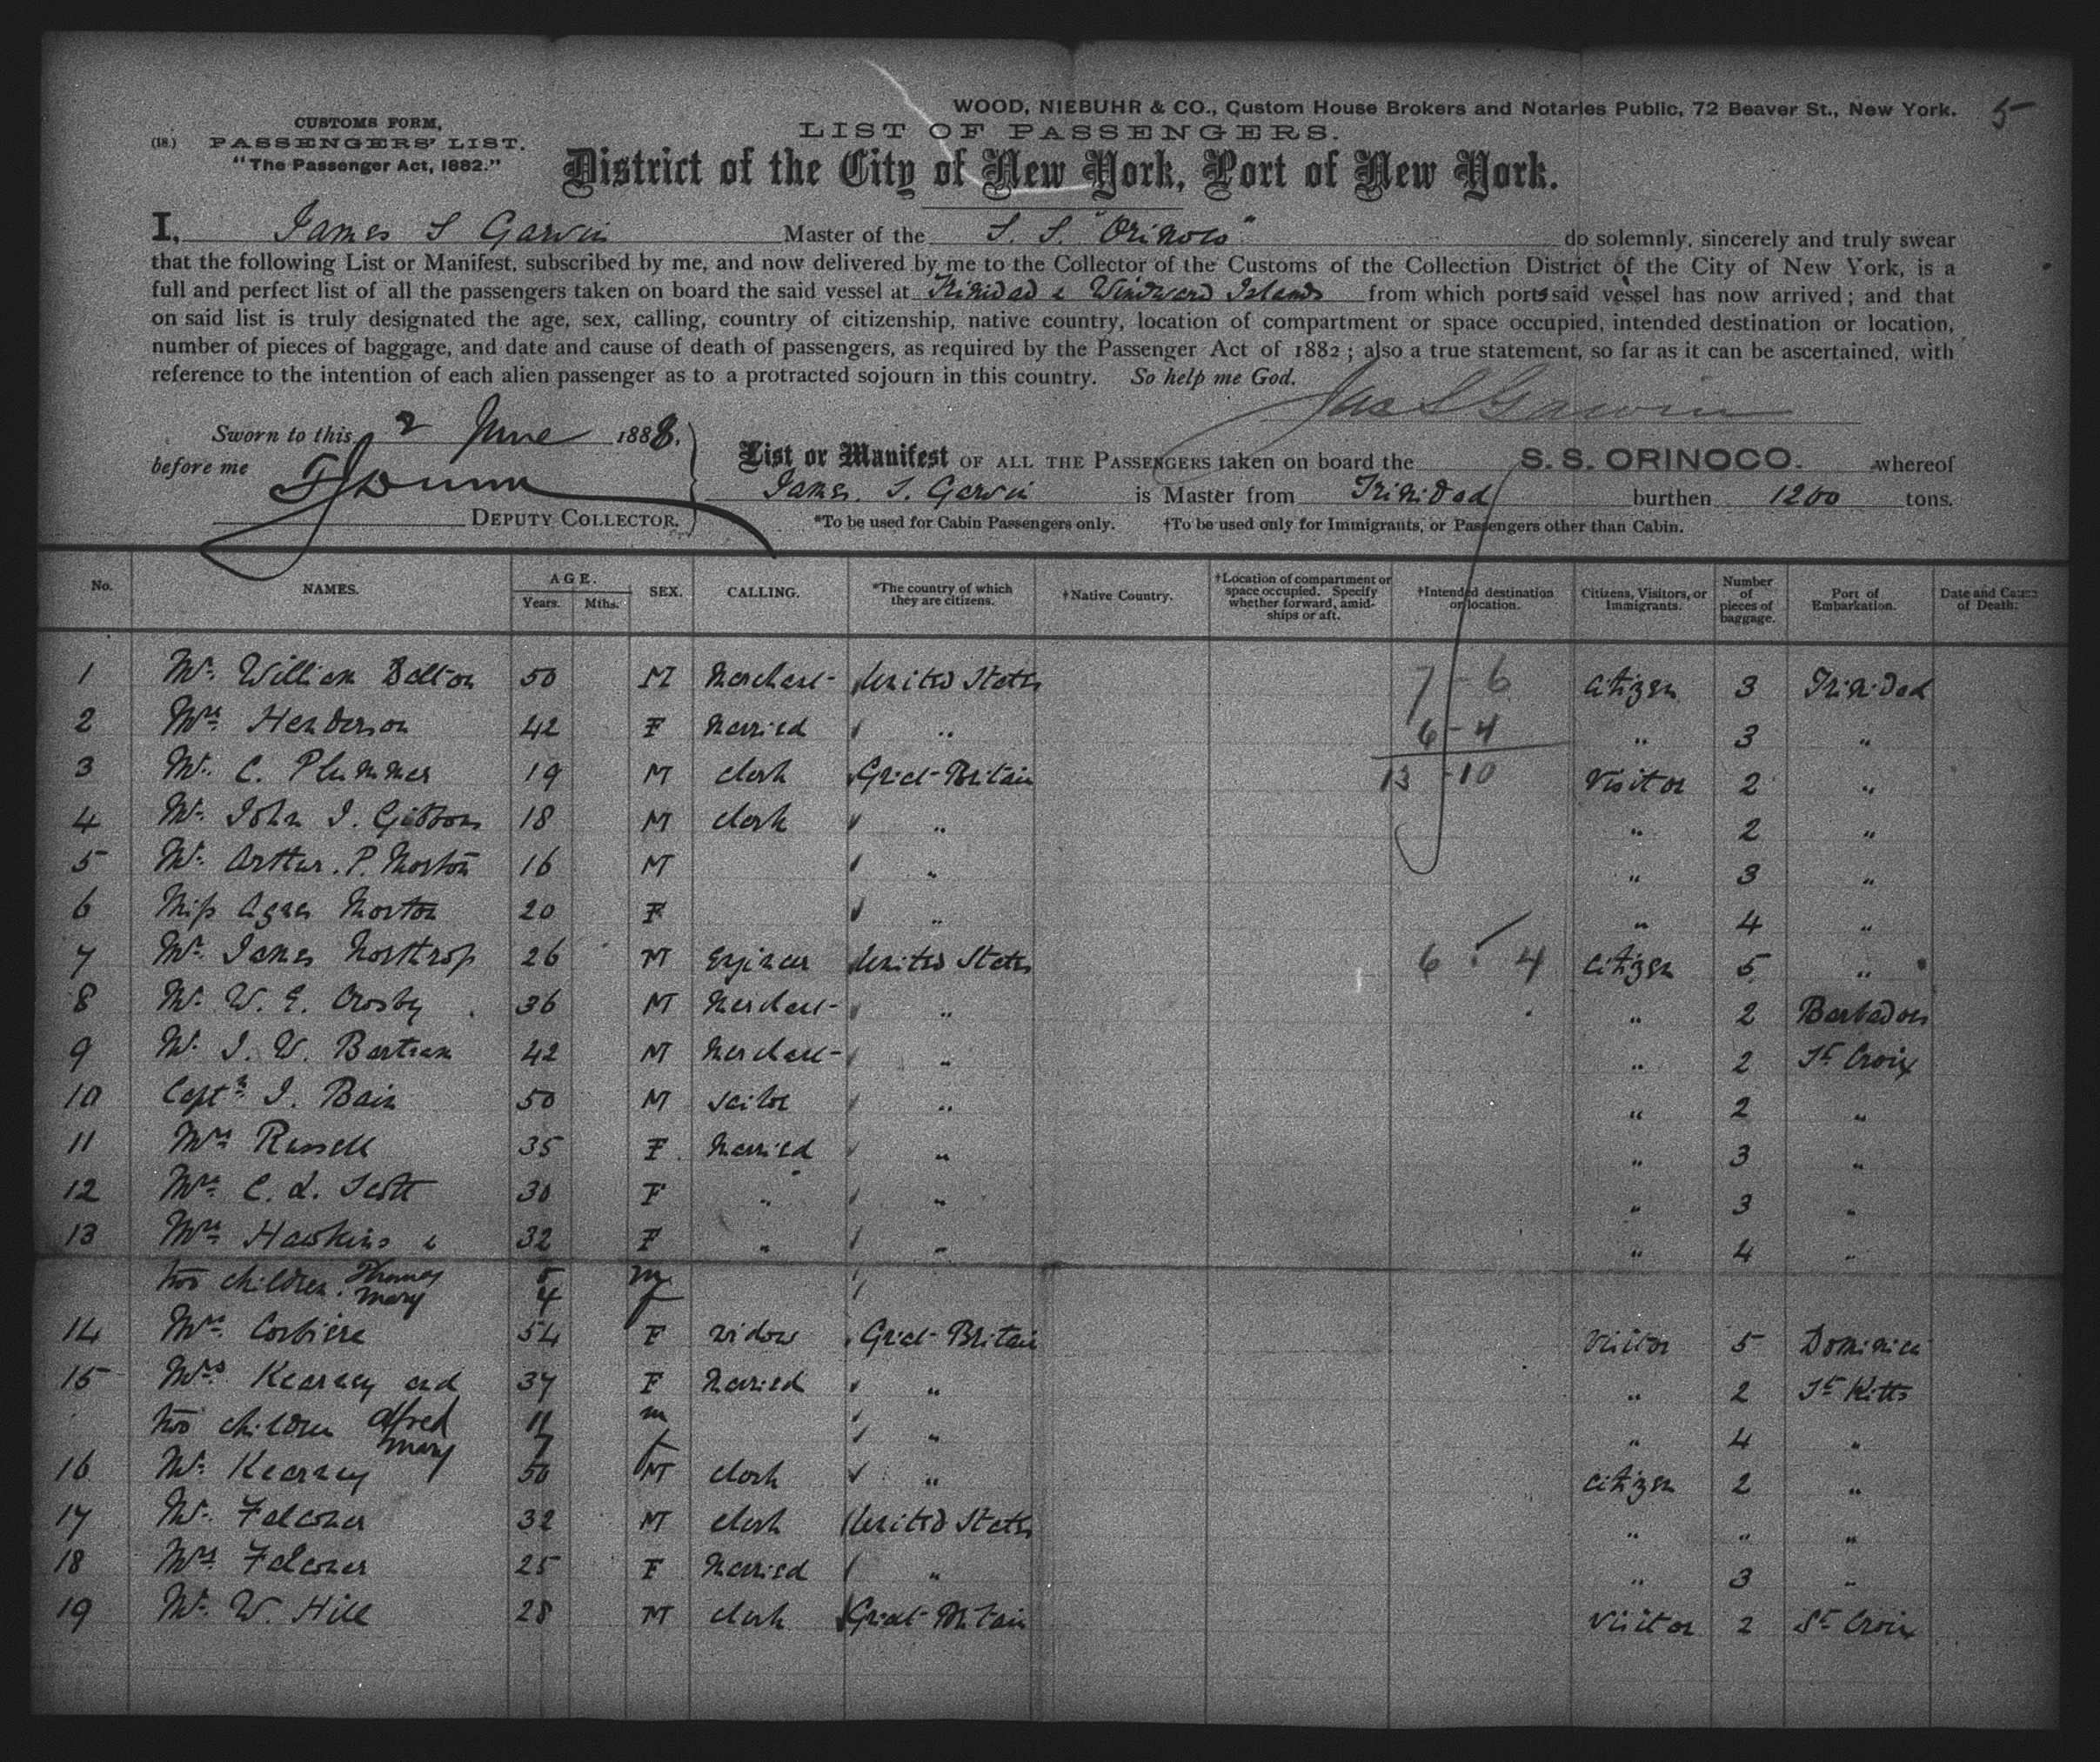 WOOD, NIEBUHR & CO., Custom House Brokers and Notaries Public, 72 Beaver St., New York. 5
(18.) CUSTOMS FORM,
PASSENGERS' LIST.
"The Passenger Act, 1882."
LIST OF PASSENGERS.
District of the City of New York, Port of New York.
I, James S Garvin Master of the S. S. "Orinoco" do solemnly, sincerely and truly swear
that the following List or Manifest, subscribed by me, and now delivered by me to the Collector of the Customs of the Collection District of the City of New York, is a
full and perfect list of all the passengers taken on board the said vessel at Trinidad & Windward Islands from which ports said vessel has now arrived; and that
on said list is truly designated the age, sex, calling, country of citizenship, native country, location of compartment or space occupied, intended destination or location,
number of pieces of baggage, and date and cause of death of passengers, as required by the Passenger Act of 1882; also a true statement, so far as it can be ascertained, with
reference to the intention of each alien passenger as to a protracted sojourn in this country. So help me God.
Jas S Garvin
Sworn to this 2 June 1888.
before me
DEPUTY COLLECTOR.
List or Manifest OF ALL THE PASSENGERS taken on board the S. S. ORINOCO. whereof
James. S. Garvin is Master from Trinidad burthen 1200 tons.
*To be used for Cabin Passengers only. †To be used only for Immigrants, or Passengers other than Cabin.
No. NAMES. AGE. Years. Mths. SEX. CALLING. *The country of which they are citizens. †Native Country. †Location of compartment or space occupied. Specify whether forward, amidships or aft. †Intended destination or location. Citizens, Visitors, or Immigrants. Number of pieces of baggage. Port of Embarkation. Date and Cause of Death.
1 Mr. William Dalton 50 M Merchant United States 7 - 6 Citizen 3 Trinidad
2 Mrs Henderson 42 F Married " 6 - 4 " 3 "
3 Mr. C. Plummer 19 M clerk Great Britain 13 - 10 Visitor 2 "
4 Mr. John J. Gibbons 18 M clerk " " 2 "
5 Mr. Arthur. P. Morton 16 M " " 3 "
6 Miss Agnes Morton 20 F " " 4 "
7 Mr. James Northrop 26 M Engineer United States 6 4 Citizen 5 "
8 Mr. W. E. Crosby 36 M Merchant " " 2 Barbados
9 Mr. J. W. Bartram 42 M Merchant " " 2 St Croix
10 Captn J. Bain 50 M Sailor " " 2 "
11 Mrs Russell 35 F Married " " 3 "
12 Mrs C. L. Scott 30 F " " " 3 "
13 Mrs Hawkins & 32 F " " " 4 "
two children. Thomas 5 m
Mary 4 f
14 Mrs. Corbiere 54 F Widow Great Britain Visitor 5 Dominica
15 Mrs Kearney and 37 F Married " " 2 St Kitts
two children Alfred 11 m " " 4 "
Mary 7 f
16 Mr. Kearney 50 M clerk " Citizen 2 "
17 Mr. Falconer 32 M clerk United States " " "
18 Mrs Falconer 25 F Married " " 3 "
19 Mr. W. Hill 28 M clerk Great Britain Visitor 2 St Croix